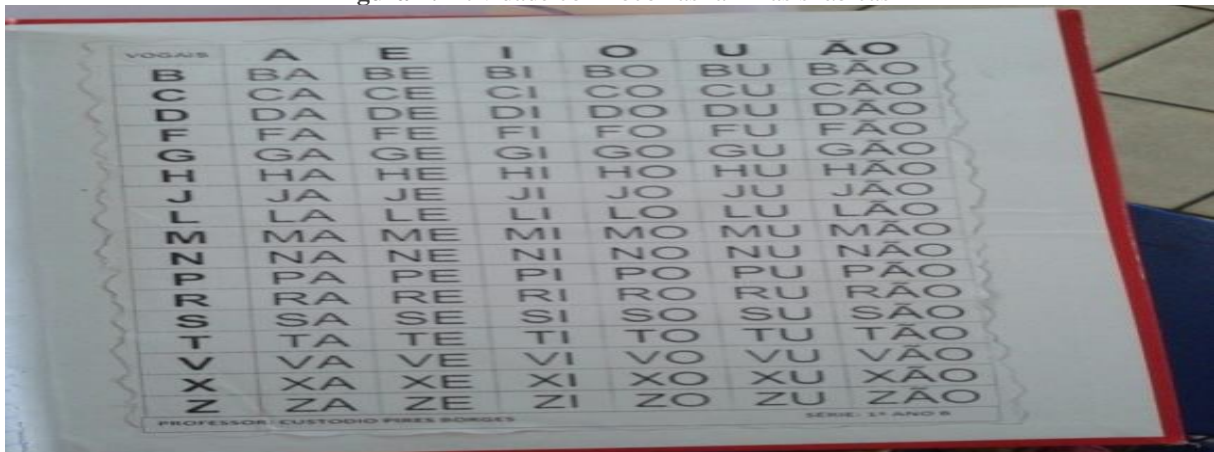 VOGAIS A E I O U ÃO
B BA BE BI BO BU BÃO
C CA CE CI CO CU CÃO
D DA DE DI DO DU DÃO
F FA FE FI FO FU FÃO
G GA GE GI GO GU GÃO
H HA HE HI HO HU HÃO
J JA JE JI JO JU JÃO
L LA LE LI LO LU LÃO
M MA ME MI MO MU MÃO
N NA NE NI NO NU NÃO
P PA PE PI PO PU PÃO
R RA RE RI RO RU RÃO
S SA SE SI SO SU SÃO
T TA TE TI TO TU TÃO
V VA VE VI VO VU VÃO
X XA XE XI XO XU XÃO
Z ZA ZE ZI ZO ZU ZÃO
PROFESSOR: CUSTODIO PIRES BORGES SÉRIE: 1º ANO B